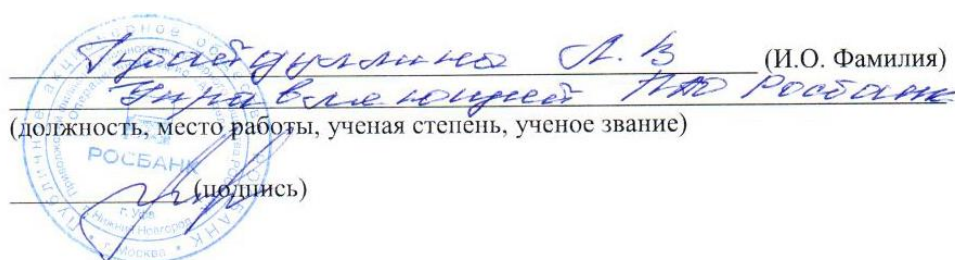 А. В (И.О. Фамилия)
Управляющей ПАО Росбанк
(должность, место работы, ученая степень, ученое звание)
(подпись)
РОСБАНК
г. Уфа
Нижний Новгород
г. Москва